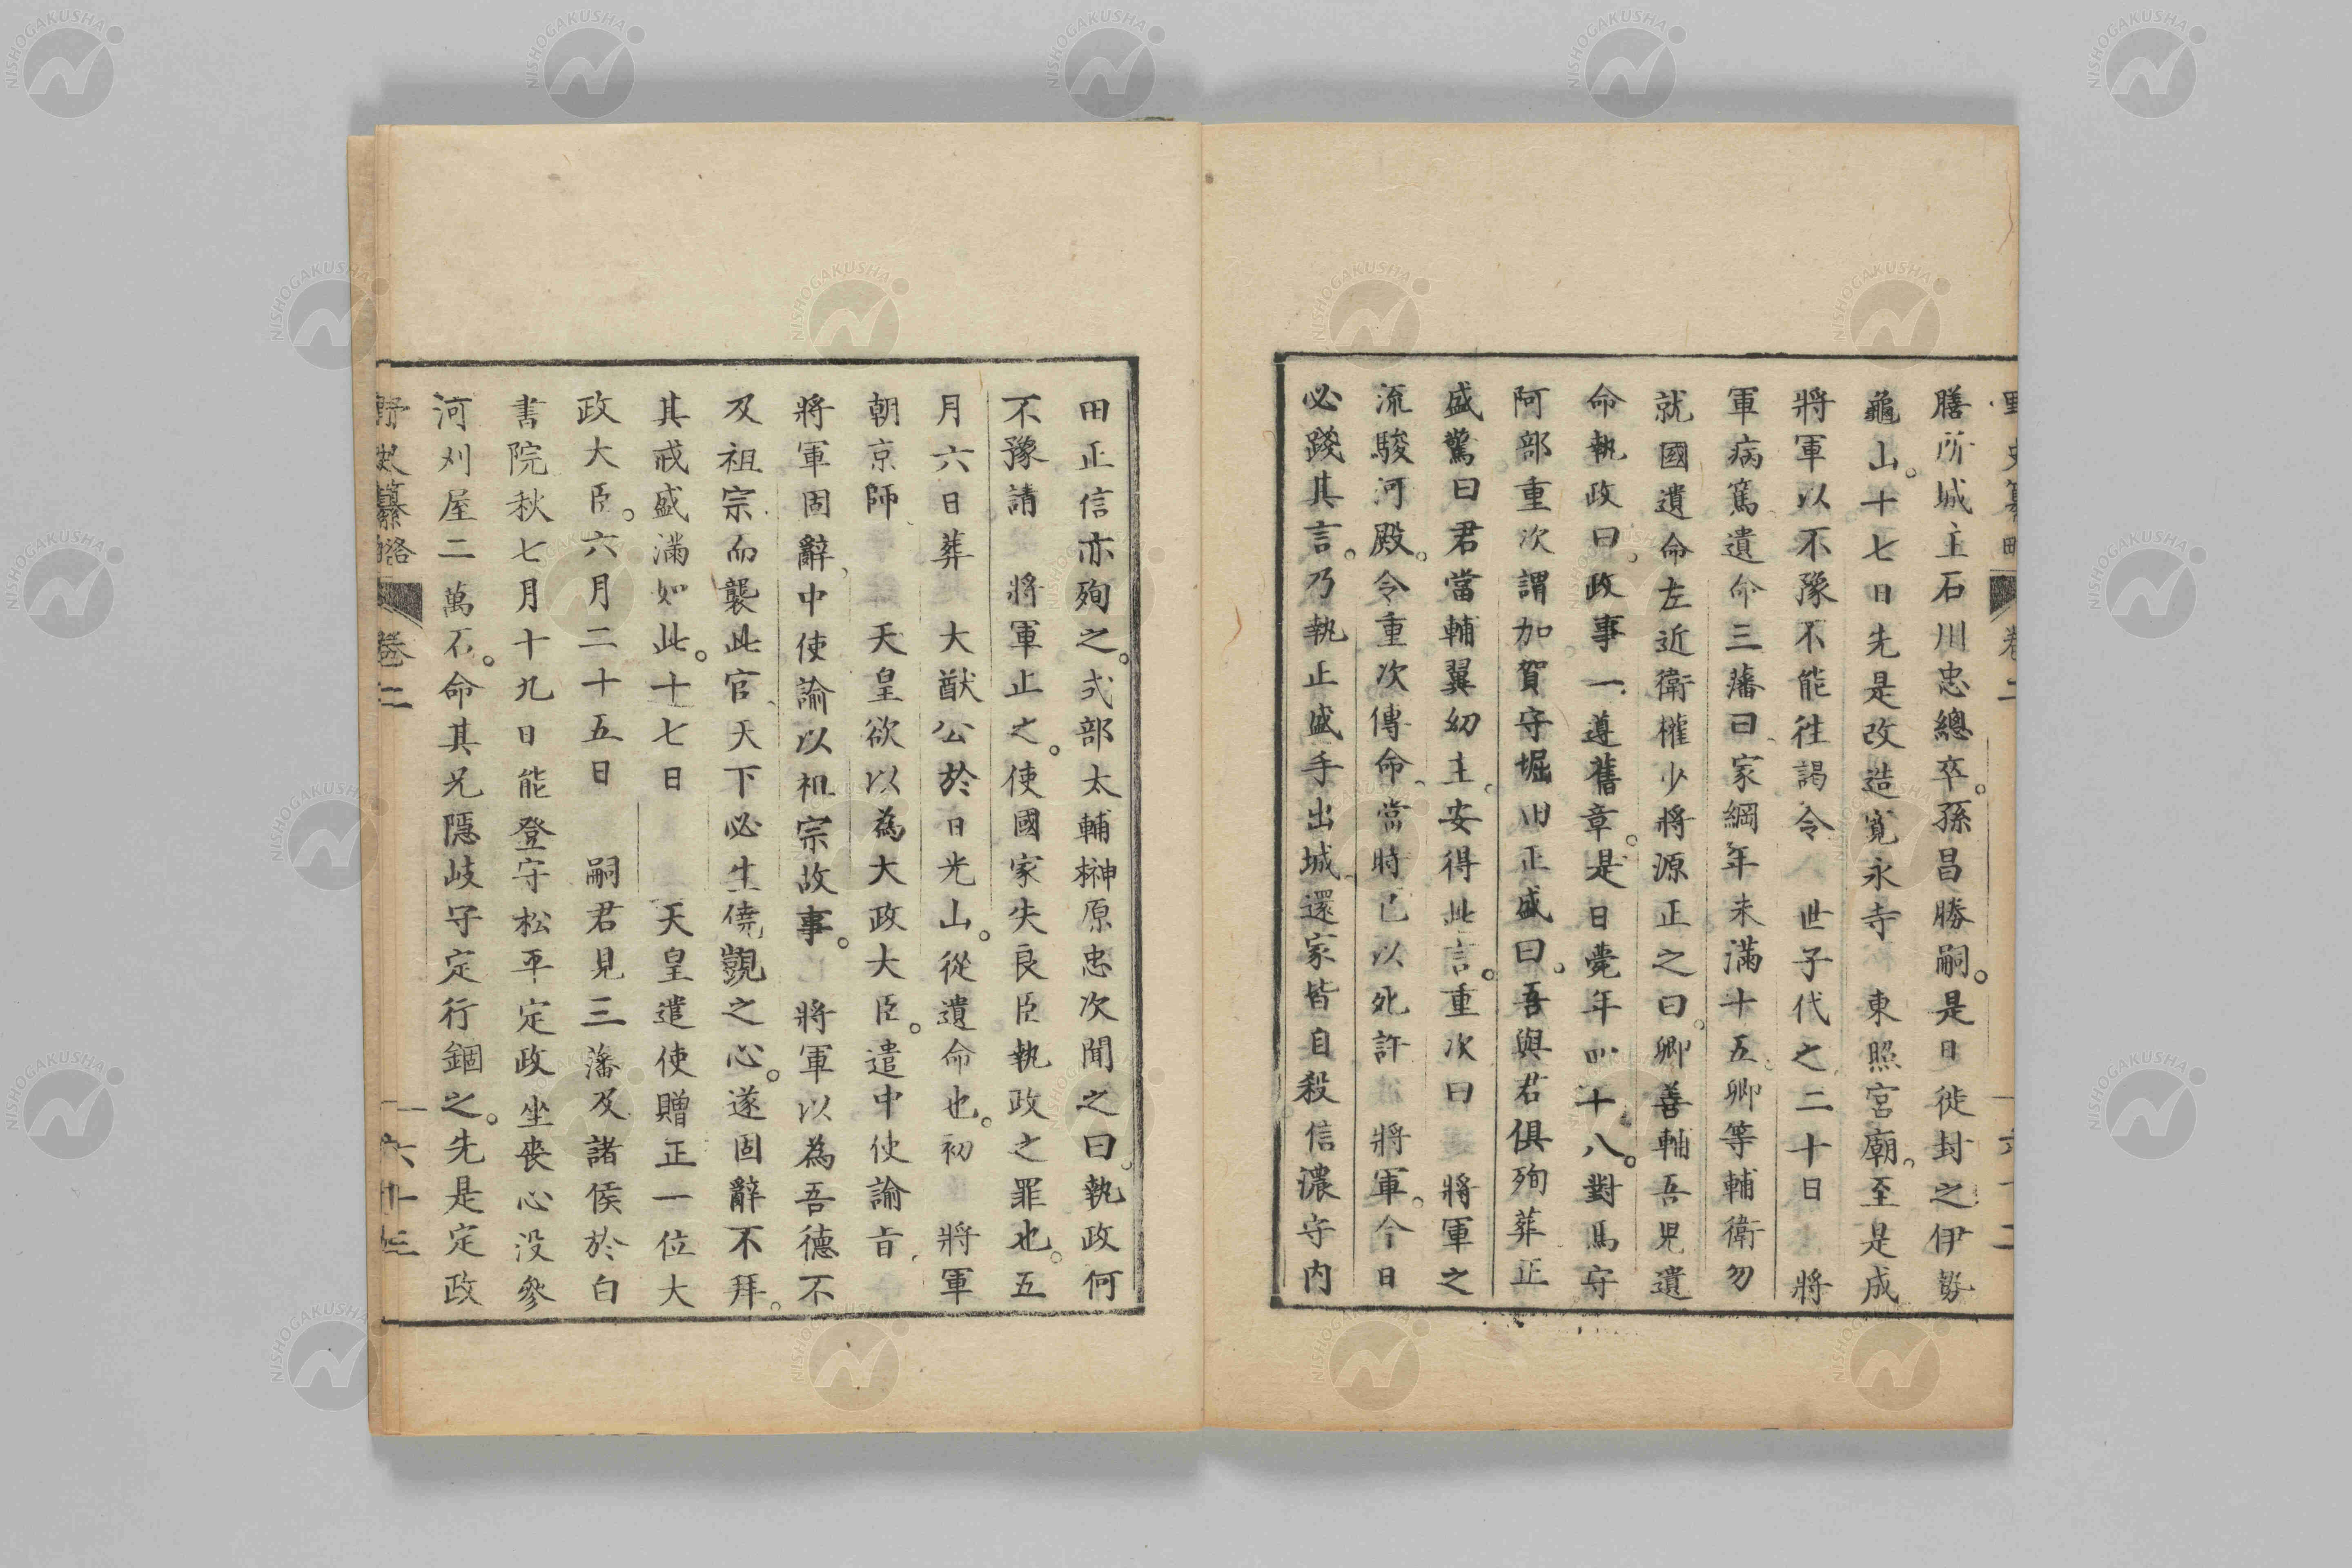 膳所城主石川忠總卒。孫昌勝嗣。是日徙封之伊勢
龜山。十七日先是改造寬永寺 東照宮廟。至是成
將軍以不豫不能往謁令 世子代之二十日 將
軍病篤遺命三藩曰家綱年未滿十五卿等輔衛勿
就國遺命左近衛權少將源正之曰。卿善輔吾兒遺
命執政曰。政事一遵舊章。是日薨年四十八。對馬守
阿部重次謂加賀守堀田正盛曰。吾與君俱殉葬正
盛驚曰君當輔翼幼主。安得此言。重次曰 將軍之
流駿河殿。令重次傳命。當時已以死許 將軍。今日
必踐其言。乃執正盛手出城。還家皆自殺信濃守内
田正信亦殉之。式部太輔榊原忠次聞之曰。執政何
不豫請 將軍止之。使國家失良臣執政之罪也。五
月六日葬 大猷公於日光山。從遺命也。初 將軍
朝京師 天皇欲以為大政大臣。遣中使諭旨
將軍固辭中使諭以祖宗故事。 將軍以為吾德不
及祖宗而襲此官天下必生僥覬之心。遂固辭不拜。
其戒盛滿如此。十七日 天皇遣使贈正一位大
政大臣。六月二十五日 嗣君見三藩及諸侯於白
書院秋七月十九日能登守松平定政坐喪心没參
河刈屋二萬石。命其兄隱岐守定行錮之。先是定政
野史纂略 卷二 六十三